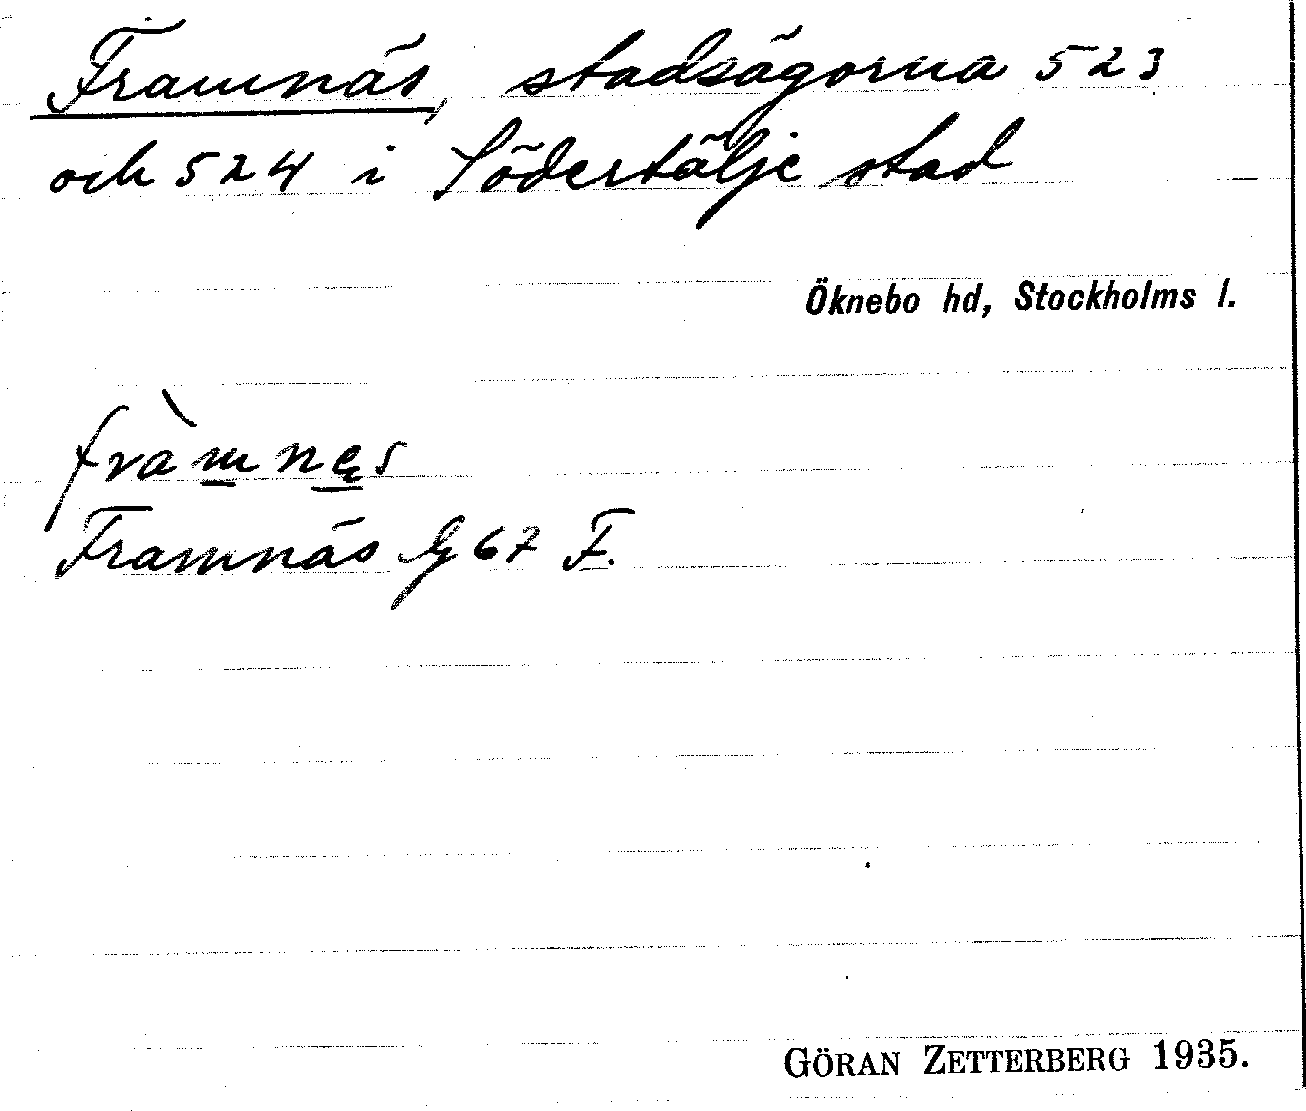 Framnäs, stadsägorna 523
och 524 i Södertälje stad
Öknebo hd, Stockholms l.
fràmnes
Framnäs G 67 F.
GÖRAN ZETTERBERG 1935.